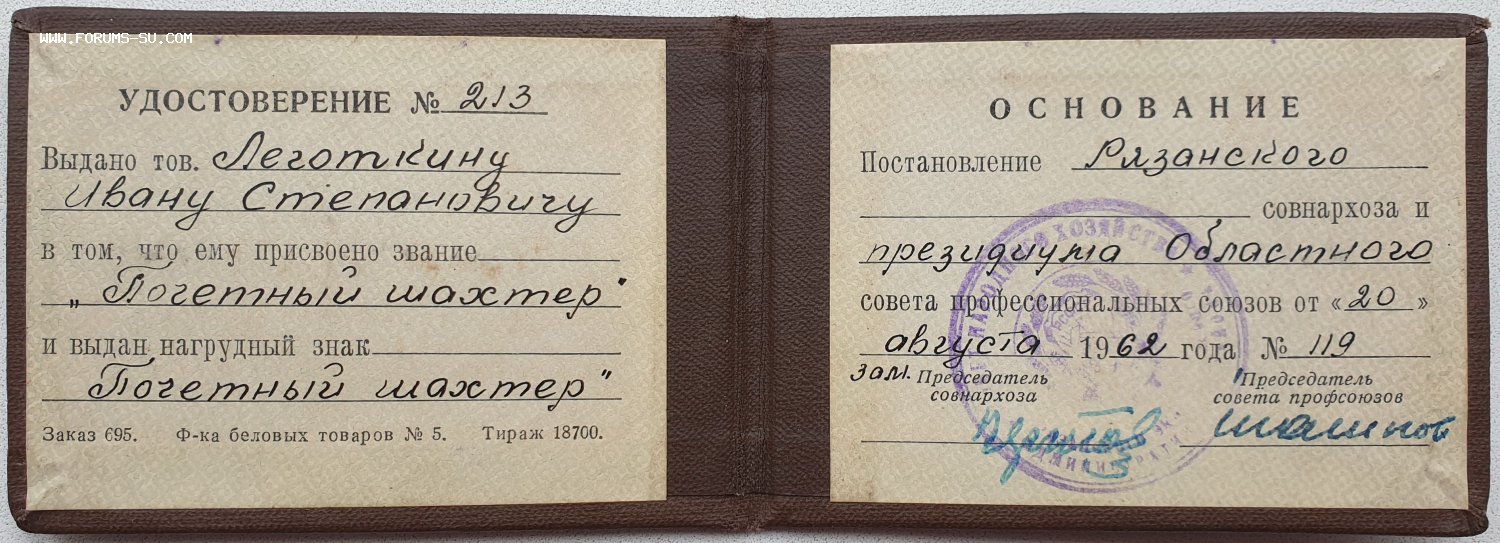 WWW.FORUMS-SU.COM
УДОСТОВЕРЕНИЕ № 213
Выдано тов. Леготкину
Ивану Степановичу
в том, что ему присвоено звание
„Почетный шахтер"
и выдан нагрудный знак
Почетный шахтер"
Заказ 695. Ф-ка беловых товаров № 5. Тираж 18700.
ОСНОВАНИЕ
Постановление Рязанского
совнархоза и
президиума Областного
совета профессиональных союзов от «20»
августа 1962 года № 119
зам. Председатель
совнархоза
Председатель
совета профсоюзов